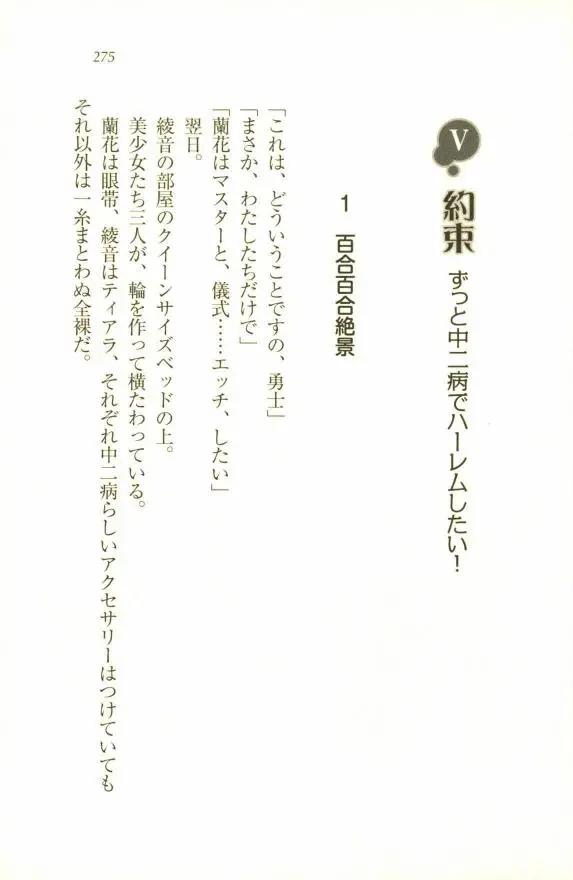 275
V 約束 ずっと中二病でハーレムしたい！
1 百合百合絶景
「これは、どういうことですの、勇士」
「まさか、わたしたちだけで」
「蘭花はマスターと、儀式……エッチ、したい」
翌日。
綾音の部屋のクイーンサイズベッドの上。
美少女たち三人が、輪を作って横たわっている。
蘭花は眼帯、綾音はティアラ、それぞれ中二病らしいアクセサリーはつけていても
それ以外は一糸まとわぬ全裸だ。